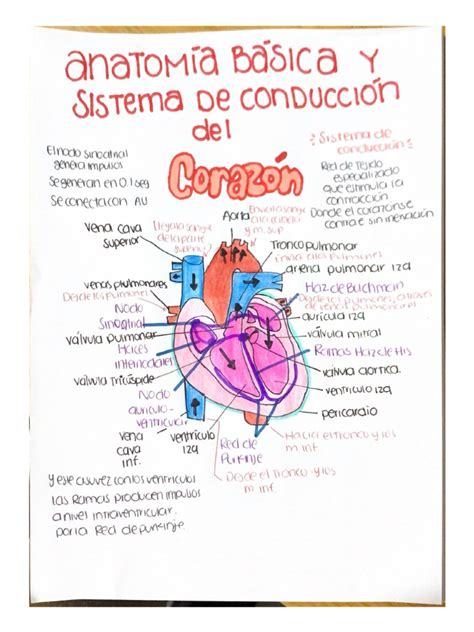 anatomía Básica y
Sistema de conducción
del
Corazón
El nodo sinoatrial
genera impulsos
Se generan en 0.1 seg
Se conecta con AU
Sistema de
conducción
Red de tejido
especializado
que estimula la
contracción
Donde el corazón se
contrae sin inervación
vena cava
superior
llega la sangre
de la parte
superior
Aorta
Envía la sangre
al
y m. sup
Tronco pulmonar
pulmones
arteria pulmonar izq
venas pulmonares
Desde los pulmones
Haz de Buchmain
Desde los pulmones, a través
de
Nodo
Sinoatrial
aurícula izq
válvula pulmonar
válvula mitral
Haces
internodales
Ramas Haz de His
válvula tricúspide
válvula aortica
Nodo
auriculo-
ventricular
ventrículo izq
pericardio
vena
cava
inf.
ventrículo
izq
Red de
Purkinje
Hacia el tronco y los
m inf
Desde el tronco y los
m inf.
y este a su vez con los ventriculos
las Ramas producen impulsos
a nivel intraventricular.
por la Red de purkinje.